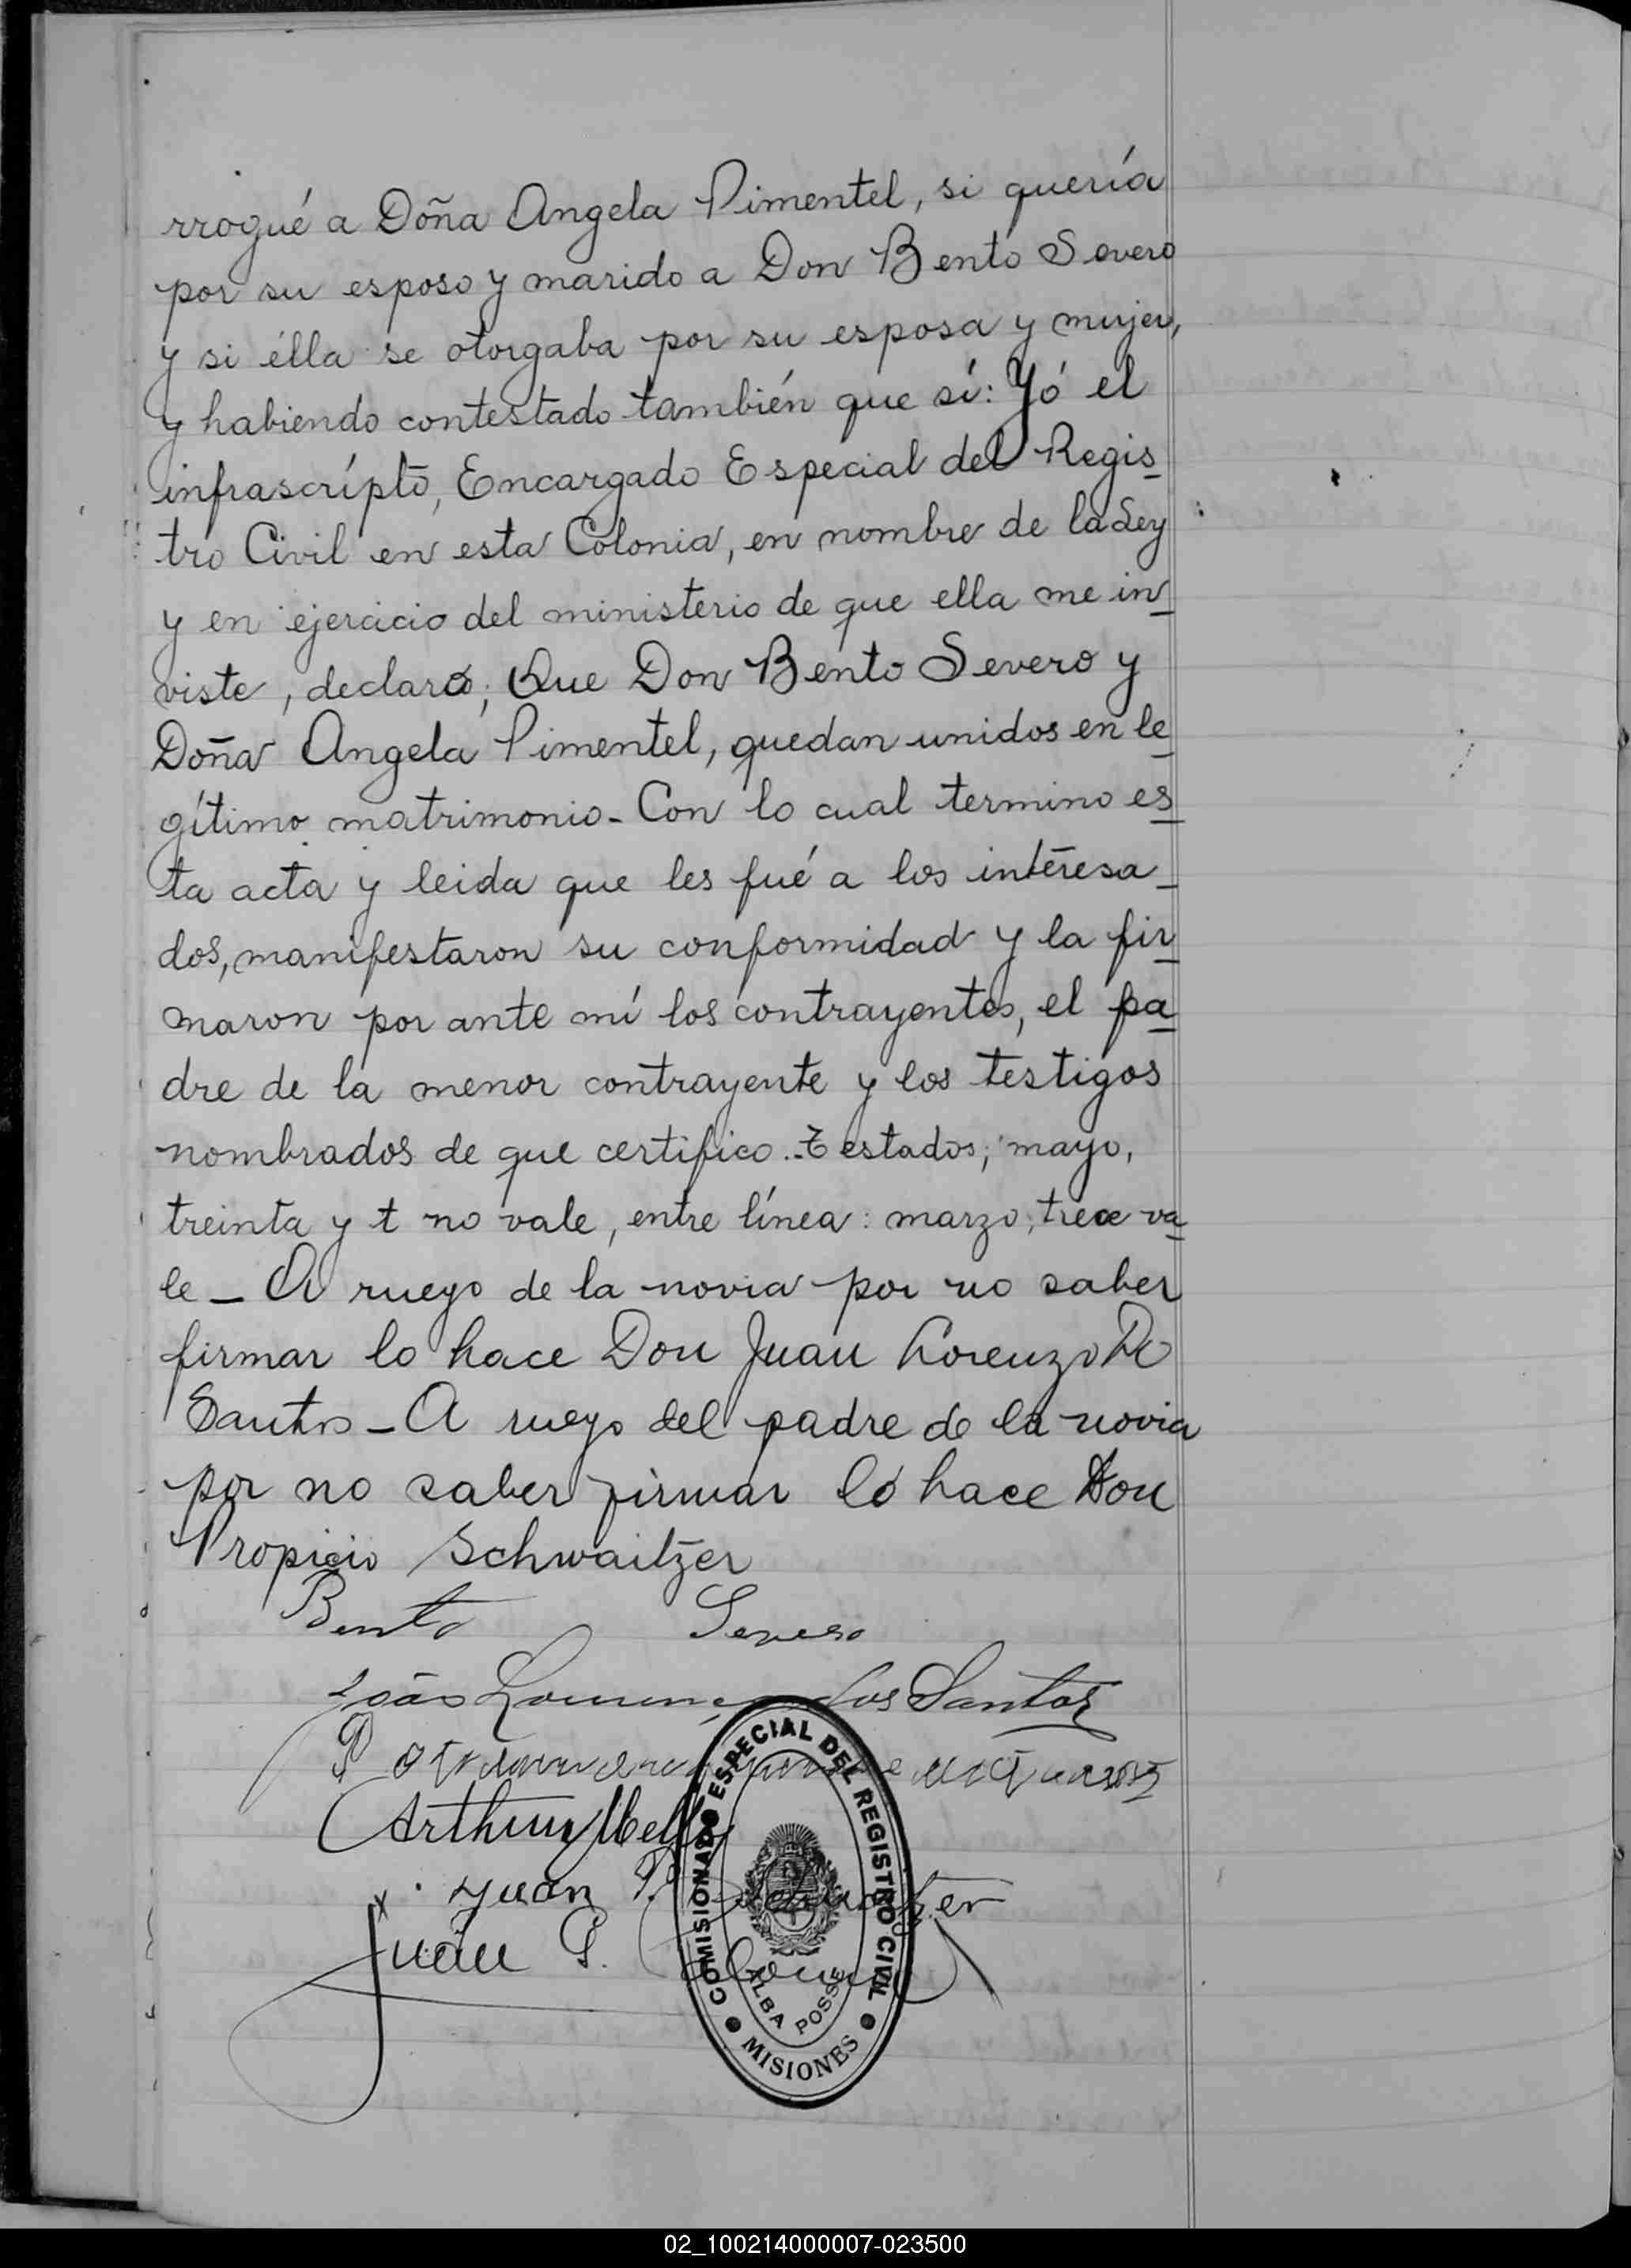 rrogué a Doña Angela Pimentel, si quería
por su esposo y marido a Don Bento Severo
y si élla se otorgaba por su esposa y mujer,
y habiendo contestado también que sí: Yó el
infrascrípto, Encargado Especial del Regis-
tro Civil en esta Colonia, en nombre de la Ley
y en ejercicio del ministerio de que ella me in-
viste, declaro; Que Don Bento Severo y
Doña Angela Pimentel, quedan unidos en le-
gítimo matrimonio - Con lo cual termino es-
ta acta y leida que les fué a los interesa-
dos, manifestaron su conformidad y la fir-
maron por ante mí los contrayentes, el pa-
dre de la menor contrayente y los testigos
nombrados de que certifico.- Testados; mayo,
treinta y t no vale, entre línea: marzo; trece va-
le - A ruego de la novia por no saber
firmar lo hace Don Juan Lorenzo De
Santos - A ruego del padre de la novia
por no saber firmar ló hace Don
Propicio Schwaitzer
Bento Severo
João Lourenço dos Santos
Arthur
Juan P.
Juan P.
COMISIONADO ESPECIAL DEL REGISTRO CIVIL
ALBA POSSE
MISIONES
02_100214000007-023500